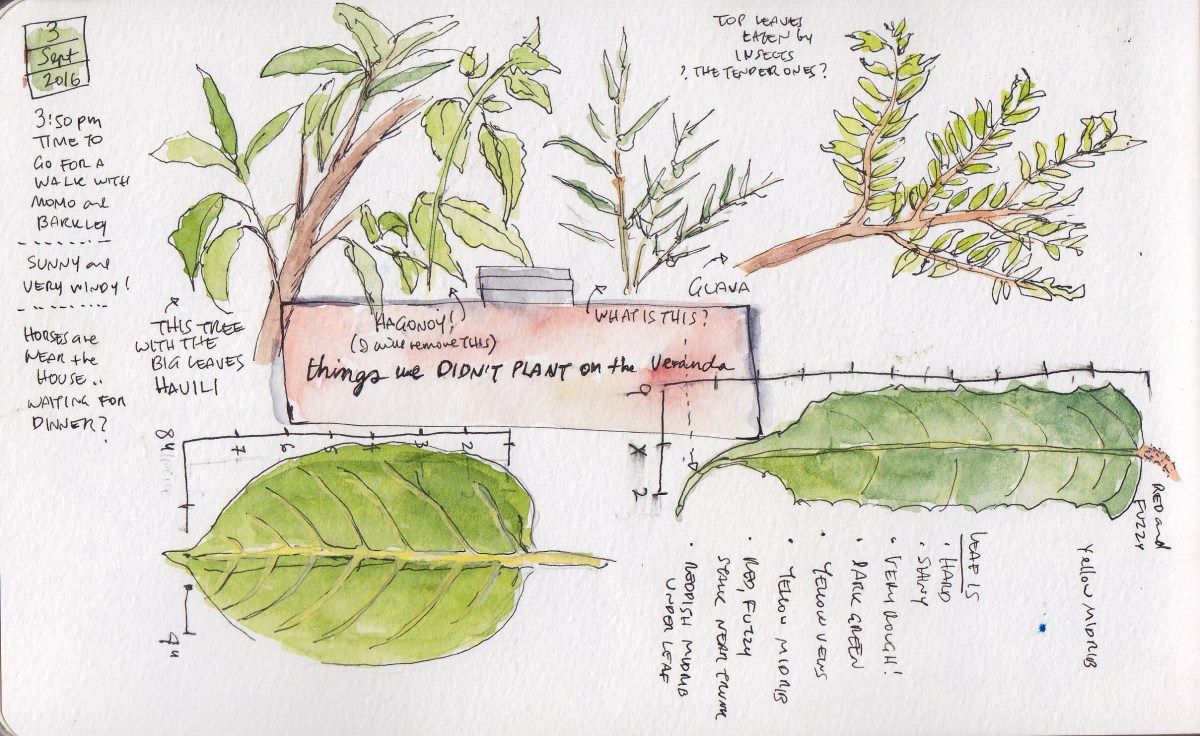 3
Sept
2016
3:50 pm
TIME TO
GO FOR A
WALK WITH
MOMO and
BARKLEY
SUNNY and
VERY WINDY!
HORSES are
NEAR the
HOUSE..
WAITING FOR
DINNER?
TOP LEAVES
EATEN by
INSECTS
? THE TENDER ONES?
THIS TREE
WITH THE
BIG LEAVES
HAUILI
HAGONOY!
(I will REMOVE THIS)
WHAT IS THIS?
GUAVA
things we DIDN'T PLANT on the Veranda
8" 7 6 5 4 3 2 1
4"
9 X 2
RED and
FUZZY
YELLOW MIDRIB
LEAF IS
• HARD
• SHINY
• VERY ROUGH!
• DARK GREEN
• YELLOW VEINS
• YELLOW MIDRIB
• RED, FUZZY
STALK NEAR TRUNK
• REDDISH MIDRIB
UNDER LEAF